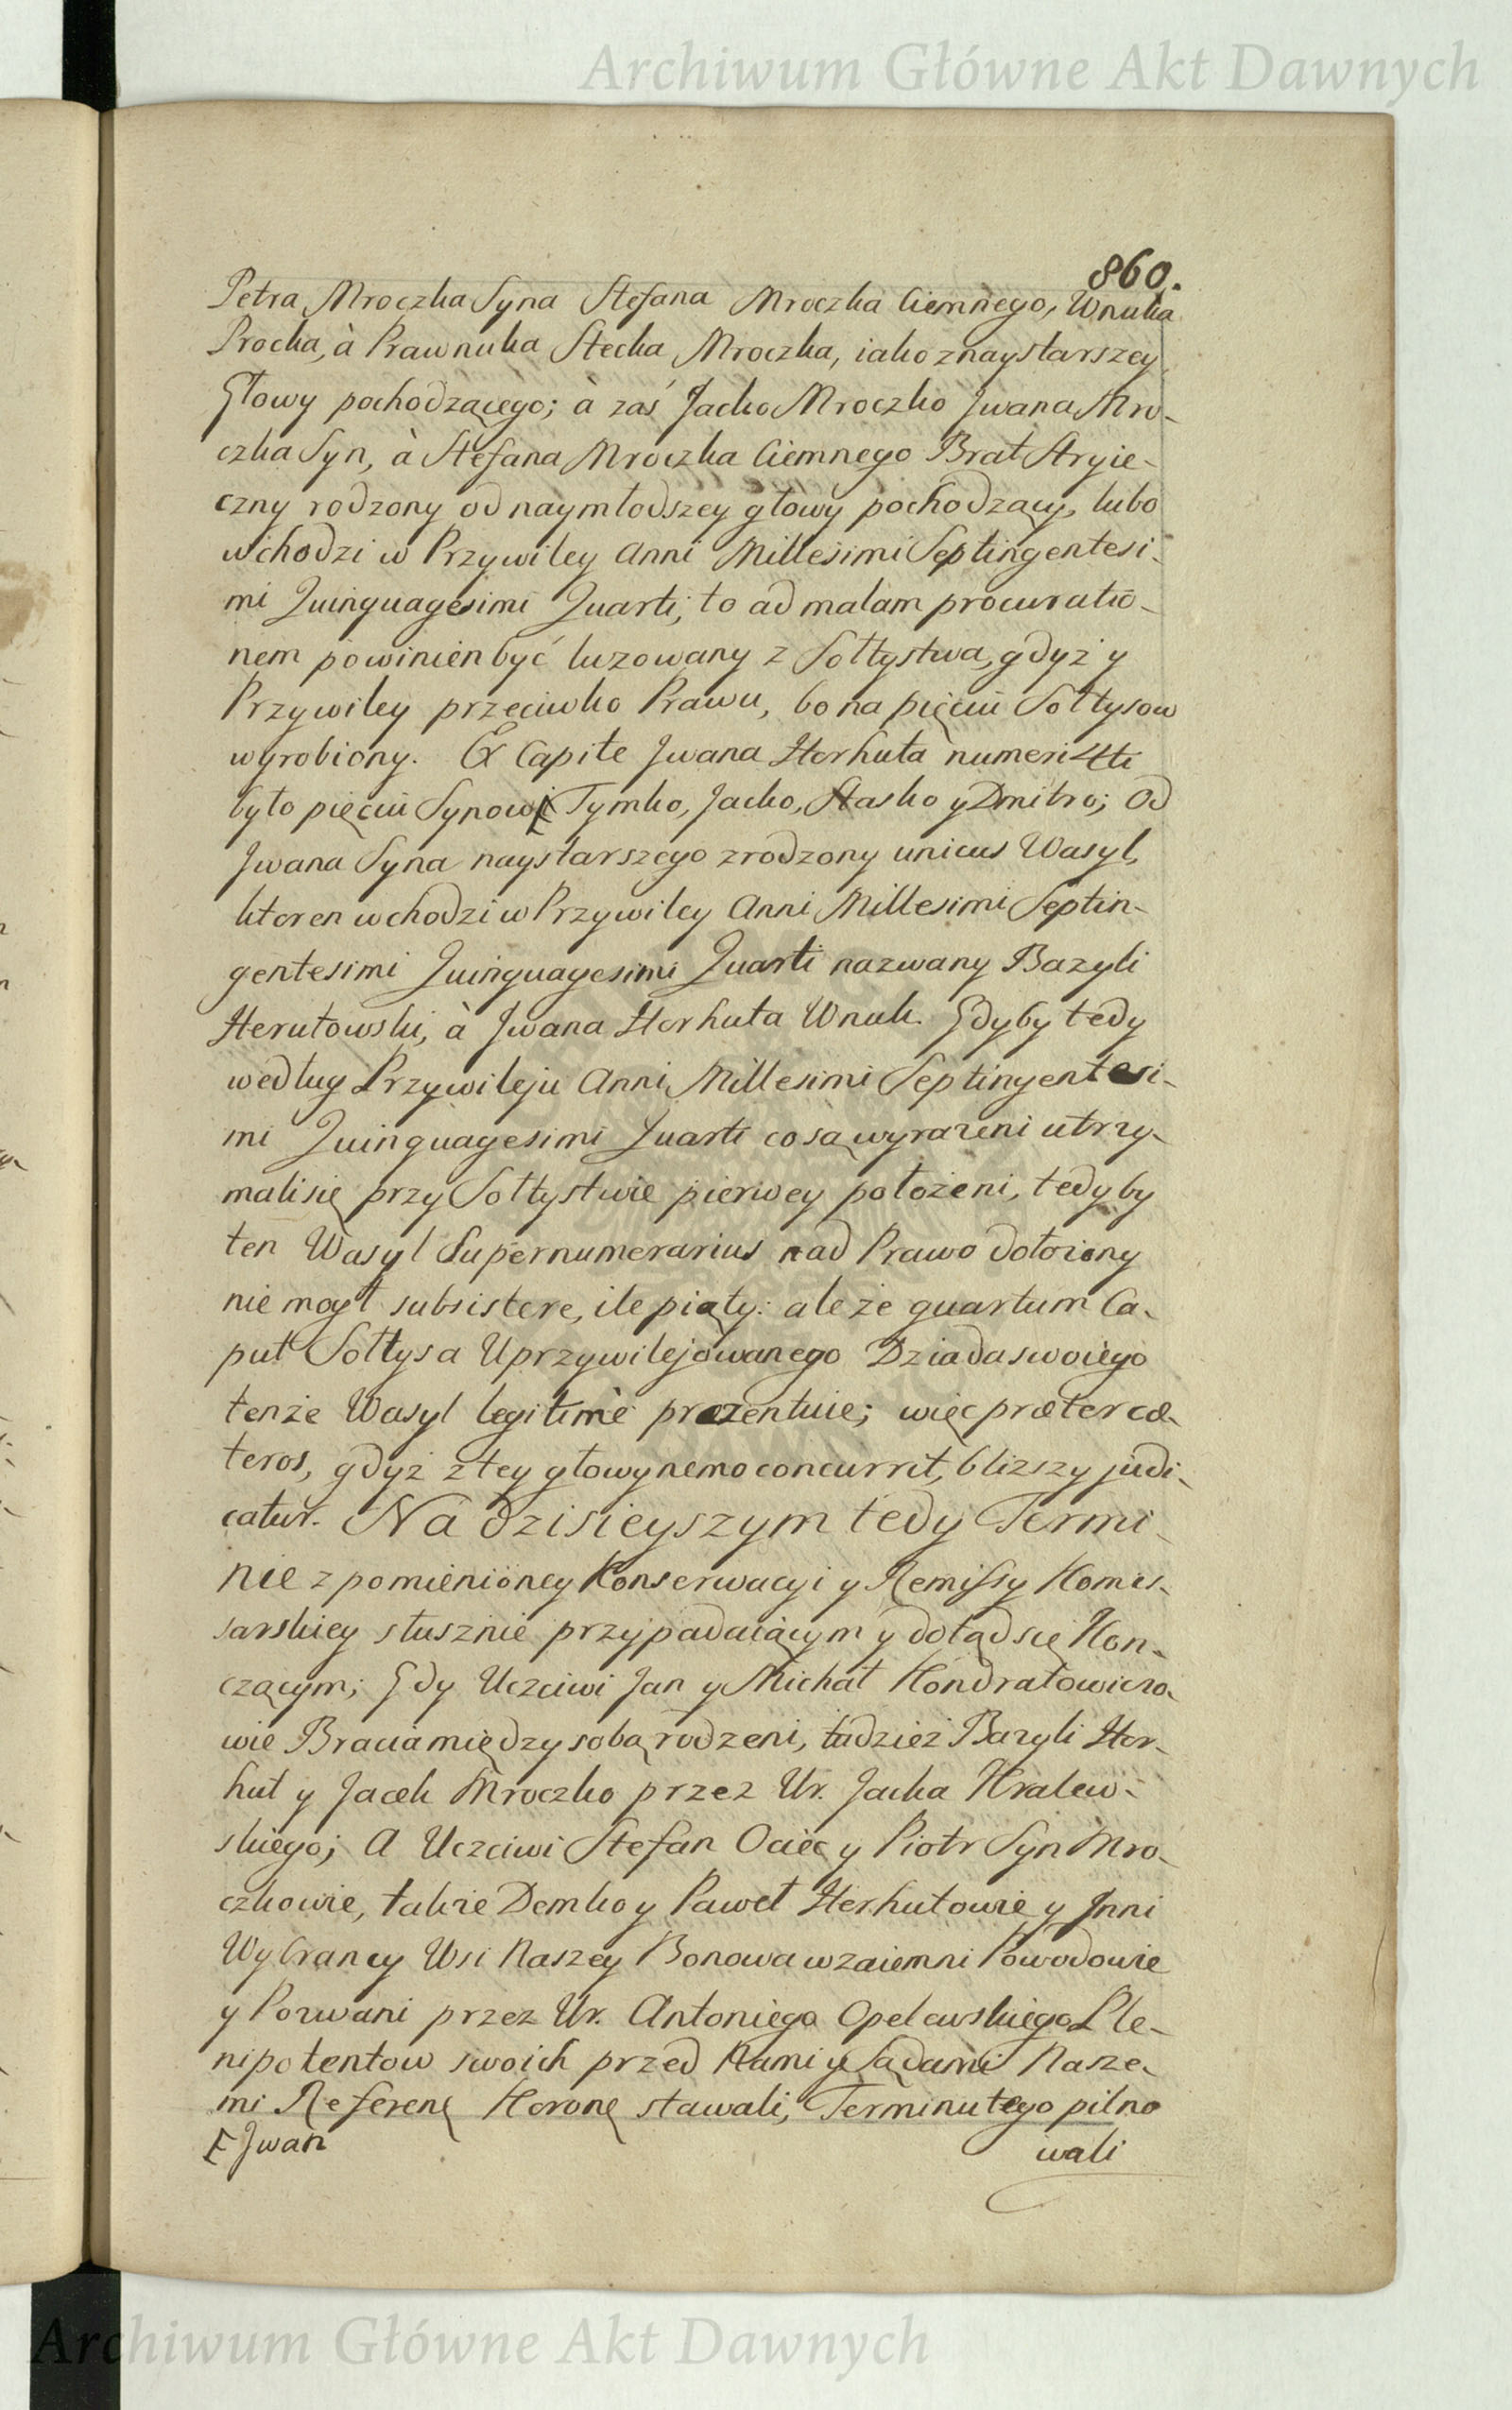 Archiwum Główne Akt Dawnych
860.
Petra Mroczka Syna Stefana Mroczka Ciemnego, Wnuka
Procka, à Prawnuka Stecka Mroczka, iako z naystarszey
Głowy pochodzącego; à zaś Jacko Mroczko Jwana Mro-
czka Syn, à Stefana Mroczka Ciemnego Brat Stryie-
czny rodzony od naymłodszey głowy pochodzący, lubo
wchodzi w Przywiley Anni Millesimi Septingentesi-
mi Quinquagesimi Quarti, to ad malam procuratio-
nem powinien być luzowany z Sołtystwa, gdyż y
Przywiley przeciwko Prawu, bo na pięciu Sołtysow
wyrobiony. Ex Capite Jwana Horhuta numeri 4ti
było pięciu Synow [ Tymko, Jacko, Stasko y Dmitro; Od
Jwana Syna naystarszego zrodzony unicus Wasyl,
ktoren wchodzi w Przywiley Anni Millesimi Septin-
gentesimi Quinquagesimi Quarti nazwany Bazyli
Herutowski, à Jwana Horhuta Wnuk. Gdyby tedy
według Przywileju Anni Millesimi Septingentesi-
mi Quinquagesimi Quarti co są wyrażeni utrzy-
mali się przy Sołtystwie pierwey położeni, tedyby
ten Wasyl Supernumerarius nad Prawo dołożony
nie mogł subsistere, ile piąty: ale że quartum Ca-
put Sołtysa Uprzywilejowanego Dziada swoiego
tenże Wasyl legitimè prezentuie; więc præter cæ-
teros, gdyż z tey głowy nemo concurrit, bliższy judi-
catur. Na dzisieyszym tedy Termi-
nie z pomienioney Konserwacyi y Remissy Komis-
sarskiey słusznie przypadaiącym y dotąd się Kon-
czącym; Gdy Uczciwi Jan y Michał Kondratowiczo-
wie Bracia między sobą rodzeni, tudzież Bazyli Hor-
hut y Jacek Mroczko przez Ur. Jacka Kralew-
skiego; A Uczciwi Stefan Ociec y Piotr Syn Mro-
czkowie, także Demko y Paweł Herhutowie y Jnni
Wybrancy Wsi Naszey Bonowa wzaiemni Powodowie
y Pozwani przez Ur. Antoniego Opelewskiego Ple-
nipotentow swoich przed Nami y Sądami Nasze-
mi Referenę Koronę stawali, Terminu tego pilno
[ Jwan
wali
Archiwum Główne Akt Dawnych